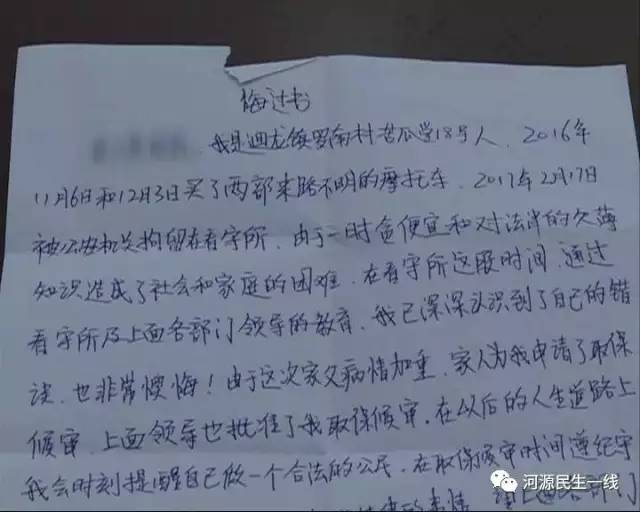 悔过书
我是迴龙镇罗南村苦瓜堂18号人，2016年
11月6日和12月3日买了两部来路不明的摩托车，2017年2月17日
被公安机关拘留在看守所，由于一时贪便宜和对法津的欠薄
知识造成了社会和家庭的困难，在看守所这段时间，通过
看守所及上面各部门领导的教育，我已深深认识到了自己的错
误，也非常懊悔！由于这次家父病情加重，家人为我申请了取保
候审，上面领导也批准了我取保候审，在以后的人生道路上
我会时刻提醒自己做一个合法的公民，在取保候审时间遵纪守
的事情
部门
河源民生一线